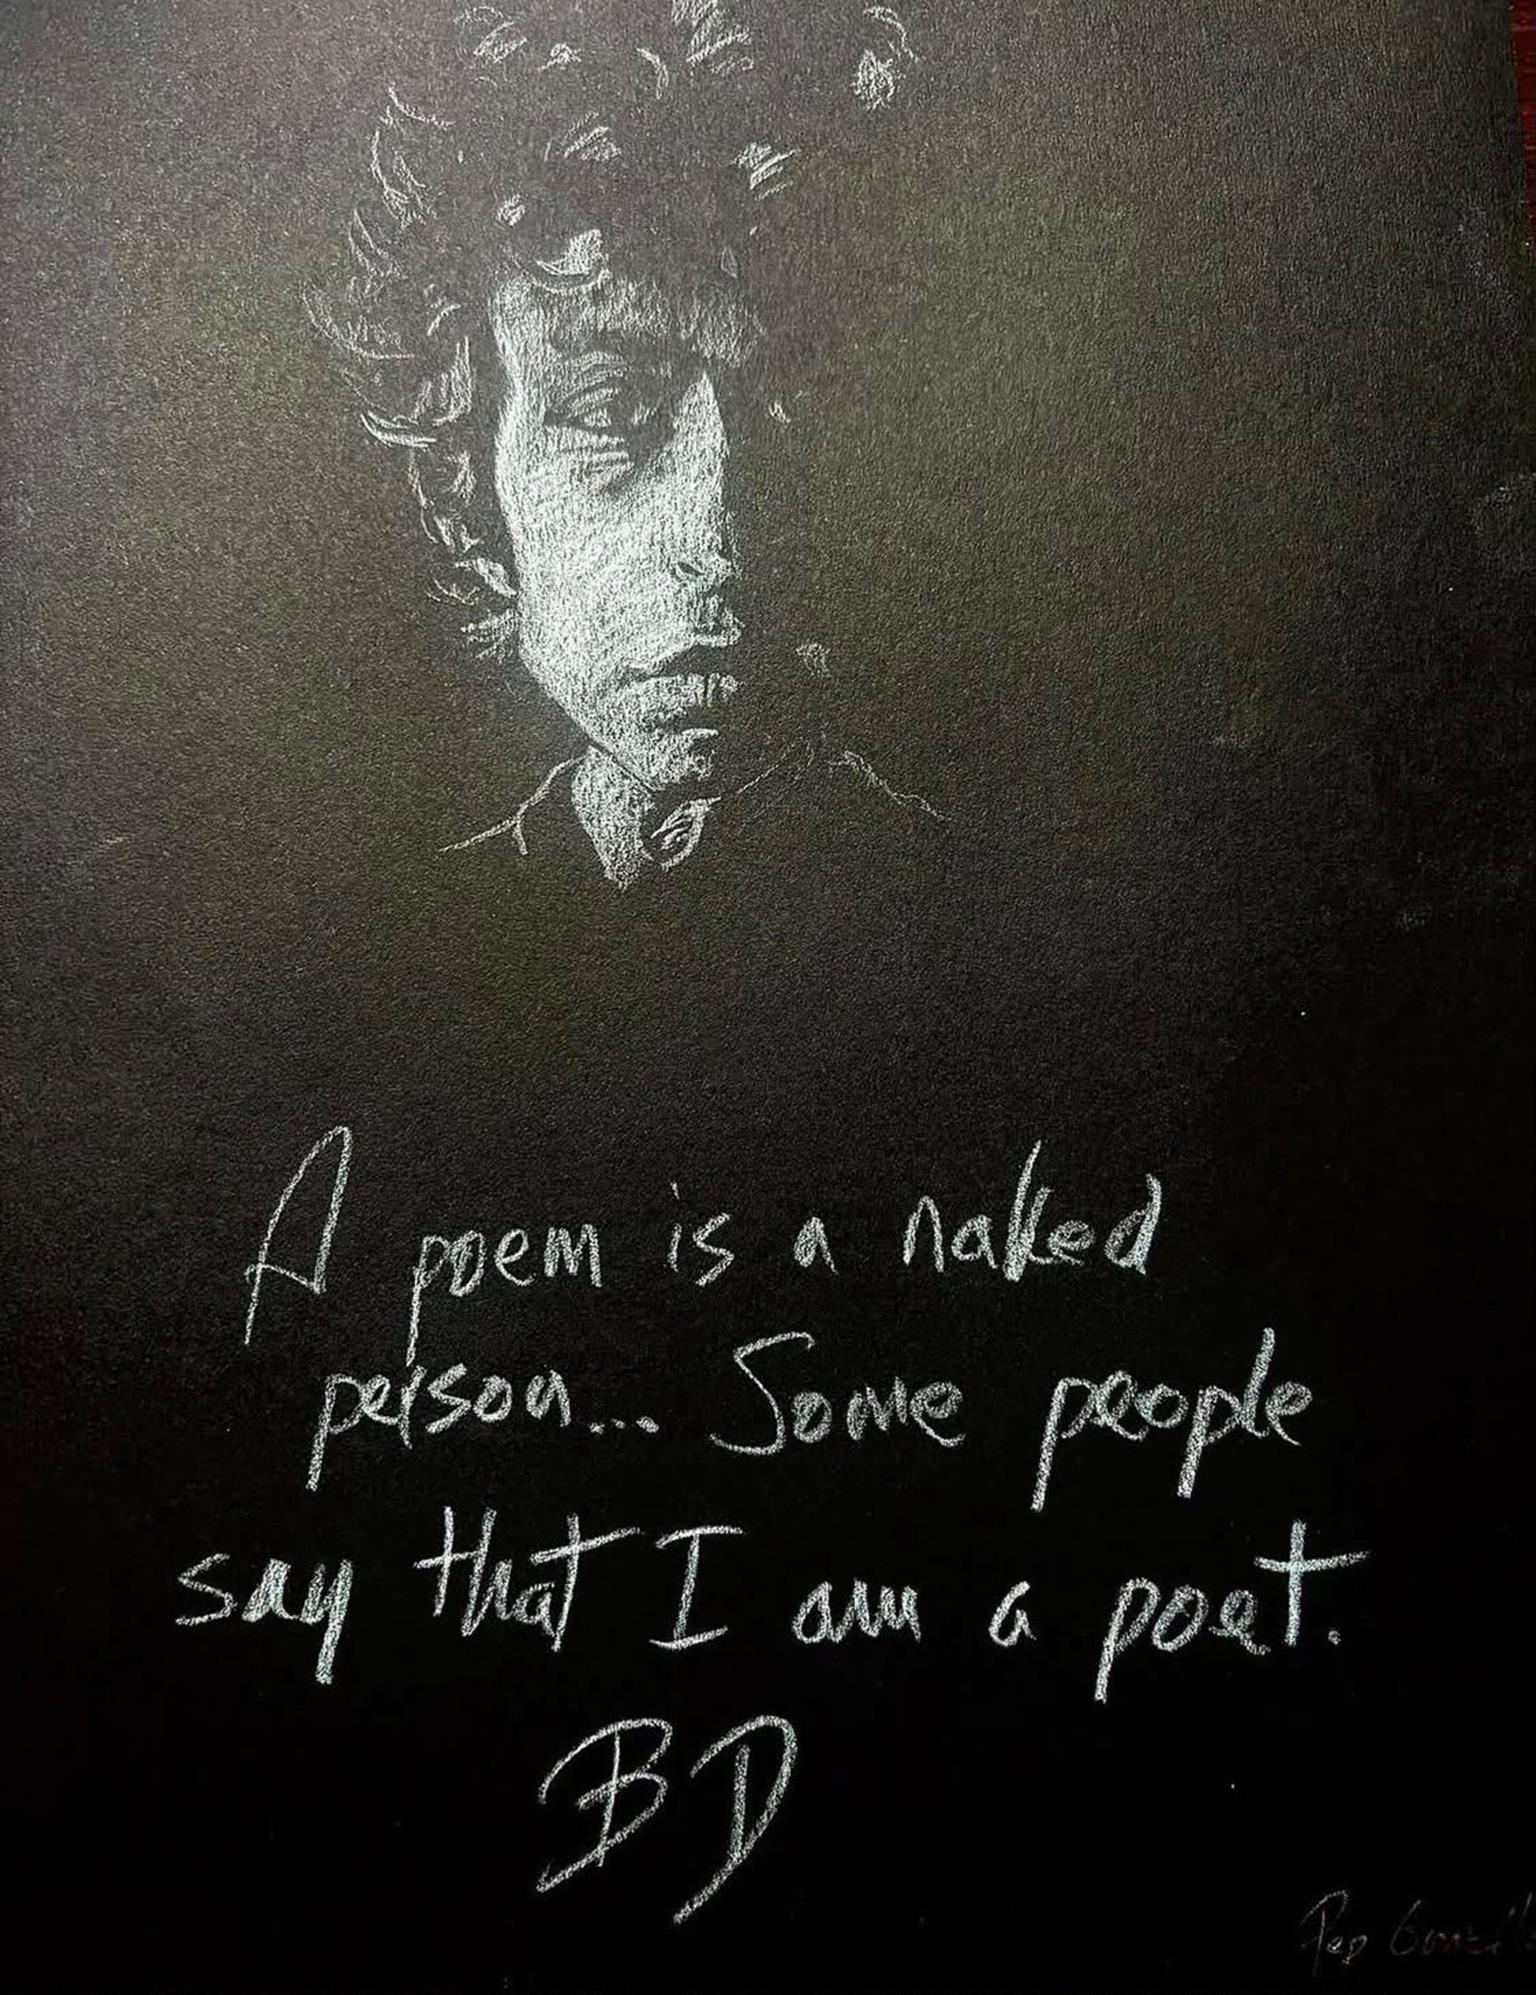 A poem is a naked
person... Some people
say that I am a poet.
BD